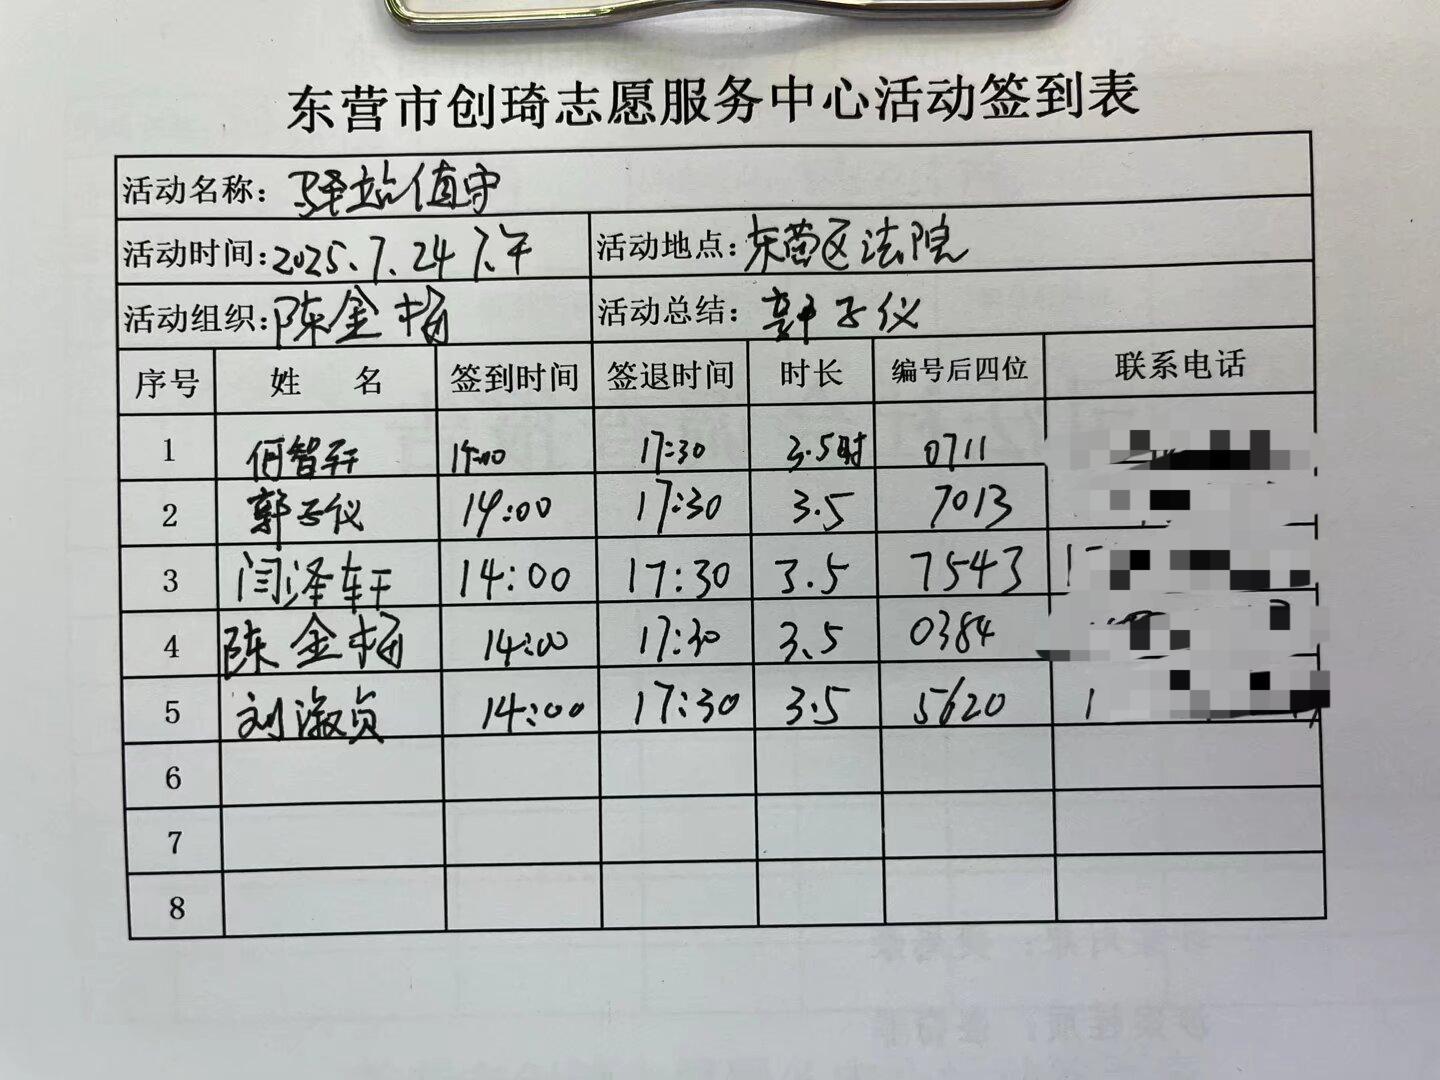 东营市创琦志愿服务中心活动签到表
活动名称：驿站值守
活动时间：2025.7.24 下午 活动地点：东营区法院
活动组织：陈金梅 活动总结：郭子仪
序号 姓 名 签到时间 签退时间 时长 编号后四位 联系电话
1 何智轩 14:00 17:30 3.5时 0711
2 郭子仪 14:00 17:30 3.5 7013
3 闫泽轩 14:00 17:30 3.5 7543 1
4 陈金梅 14:00 17:30 3.5 0384
5 刘淑贞 14:00 17:30 3.5 5620 1
6
7
8